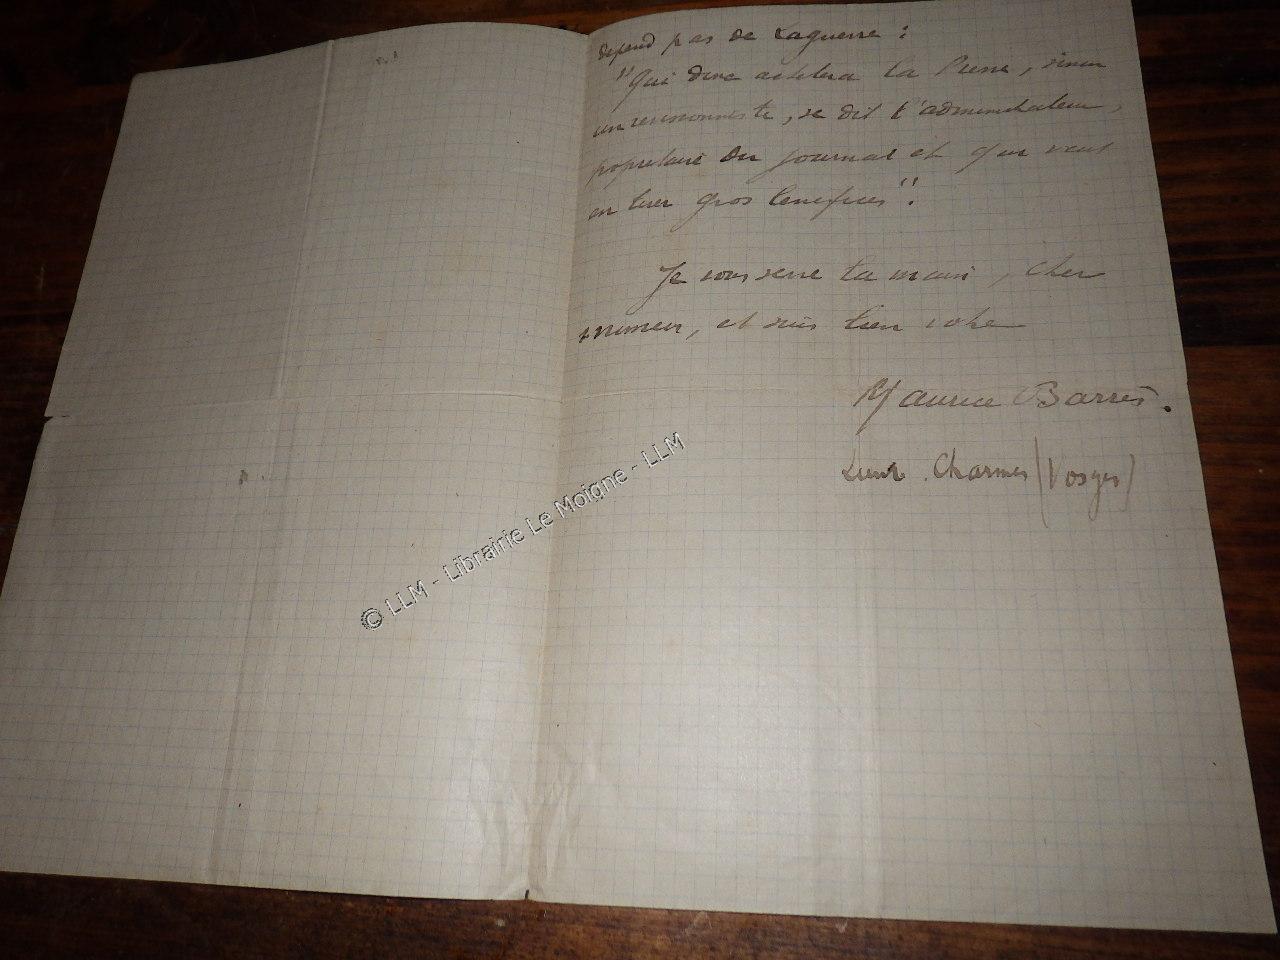 depend pas de Laguerre :
"Qui donc achetera la Presse, sinon
un revisionniste, se dit l'administrateur,
proprietaire du journal et qui veut
en tirer gros benefices".
Je vous serre la main, cher
monsieur, et suis bien votre
Maurice Barrès.
Charmes (Vosges)
© LLM - Librairie Le Moigne - LLM